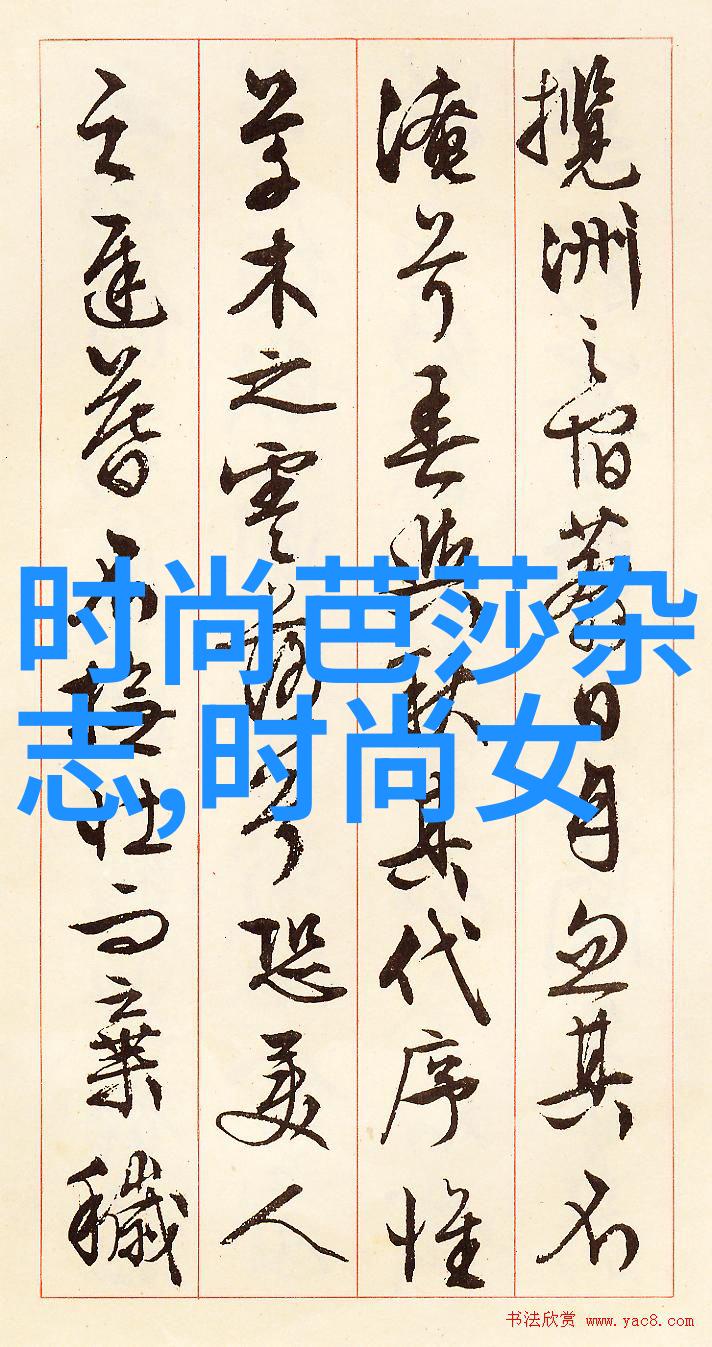 攬洲之宿莽日月忽其不
淹兮春與秋其代序惟
草木之零落兮恐美人
之遲暮不撫壯而棄穢
时尚芭莎杂
志,时尚女
书法欣赏 www.yac8.com